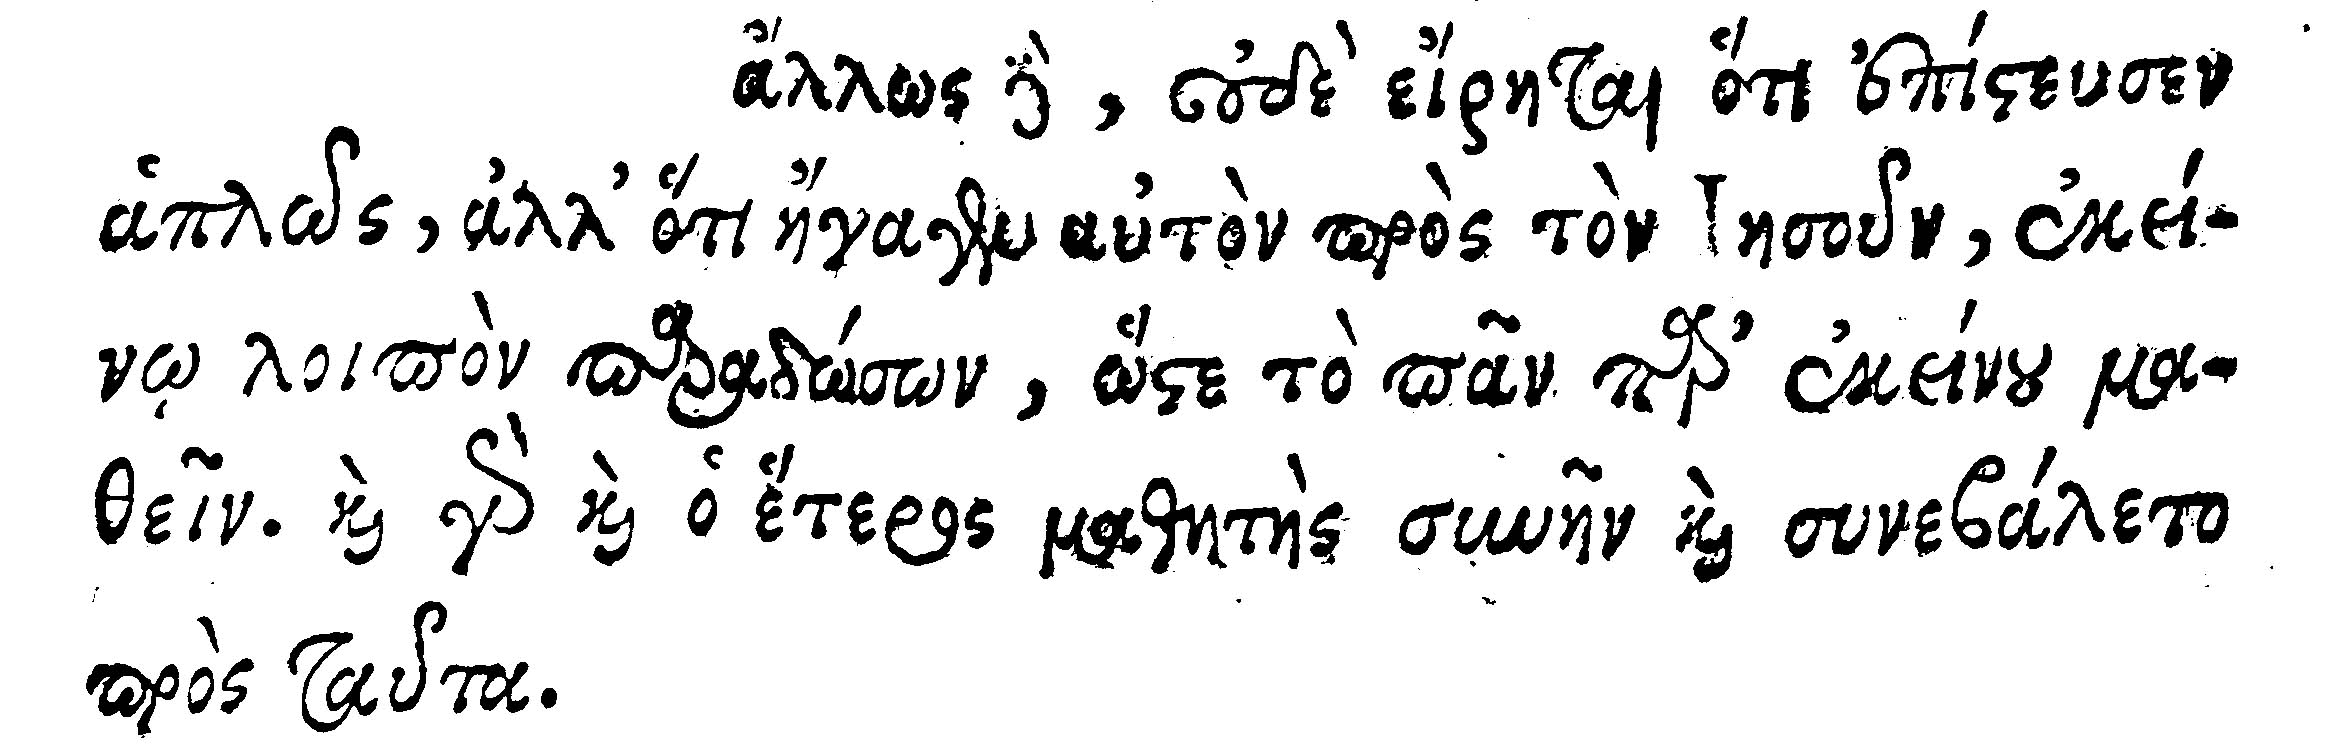 ἄλλως δὲ, οὐδὲ εἴρηται ὅτι ἐπίστευσεν
ἁπλῶς, ἀλλ' ὅτι ἤγαγεν αὐτὸν πρὸς τὸν Ἰησοῦν, ἐκεί-
νῳ λοιπὸν παραδώσων, ὥστε τὸ πᾶν παρ' ἐκείνου μα-
θεῖν. καὶ γὰρ καὶ ὁ ἕτερος μαθητὴς συνῆν καὶ συνεβάλετο
πρὸς ταῦτα.